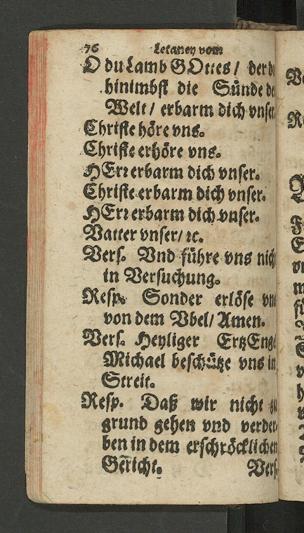 76 Letaney vom
O du Lamb GOttes / der d
hinimbst die Sünde de
Welt / erbarm dich vnser
Christe höre vns.
Christe erhöre vns.
HErr erbarm dich vnser.
Christe erbarm dich vnser.
HErr erbarm dich vnser.
Vatter vnser / ꝛc.
Vers. Vnd führe vns nich
in Versuchung.
Resp. Sonder erlöse vn
von dem Vbel / Amen.
Vers. Heyliger ErtzEng
Michael beschütze vns in
Streit.
Resp. Daß wir nicht zu
grund gehen vnd verder
ben in dem erschröcklichen
Gericht.
Vers